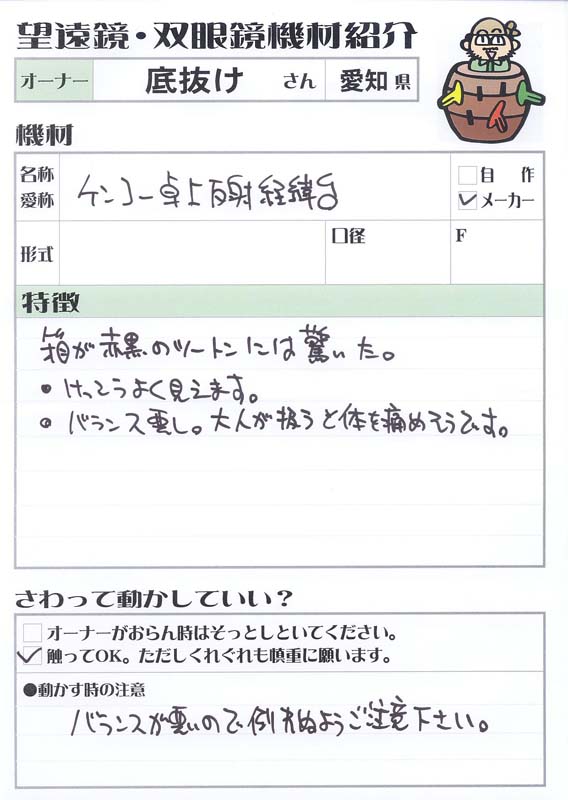 望遠鏡・双眼鏡機材紹介
オーナー 底抜け さん 愛知 県
機材
名称
愛称 ケンコー卓上反射経緯台
自作
メーカー
形式 口径 F
特徴
箱が赤黒のツートンには驚いた。
・けっこうよく見えます。
・バランス悪し。大人が扱うと体を痛めそうです。
さわって動かしていい？
オーナーがおらん時はそっとしといてください。
触ってOK。ただしくれぐれも慎重に願います。
●動かす時の注意
バランスが悪いので倒れぬようご注意下さい。